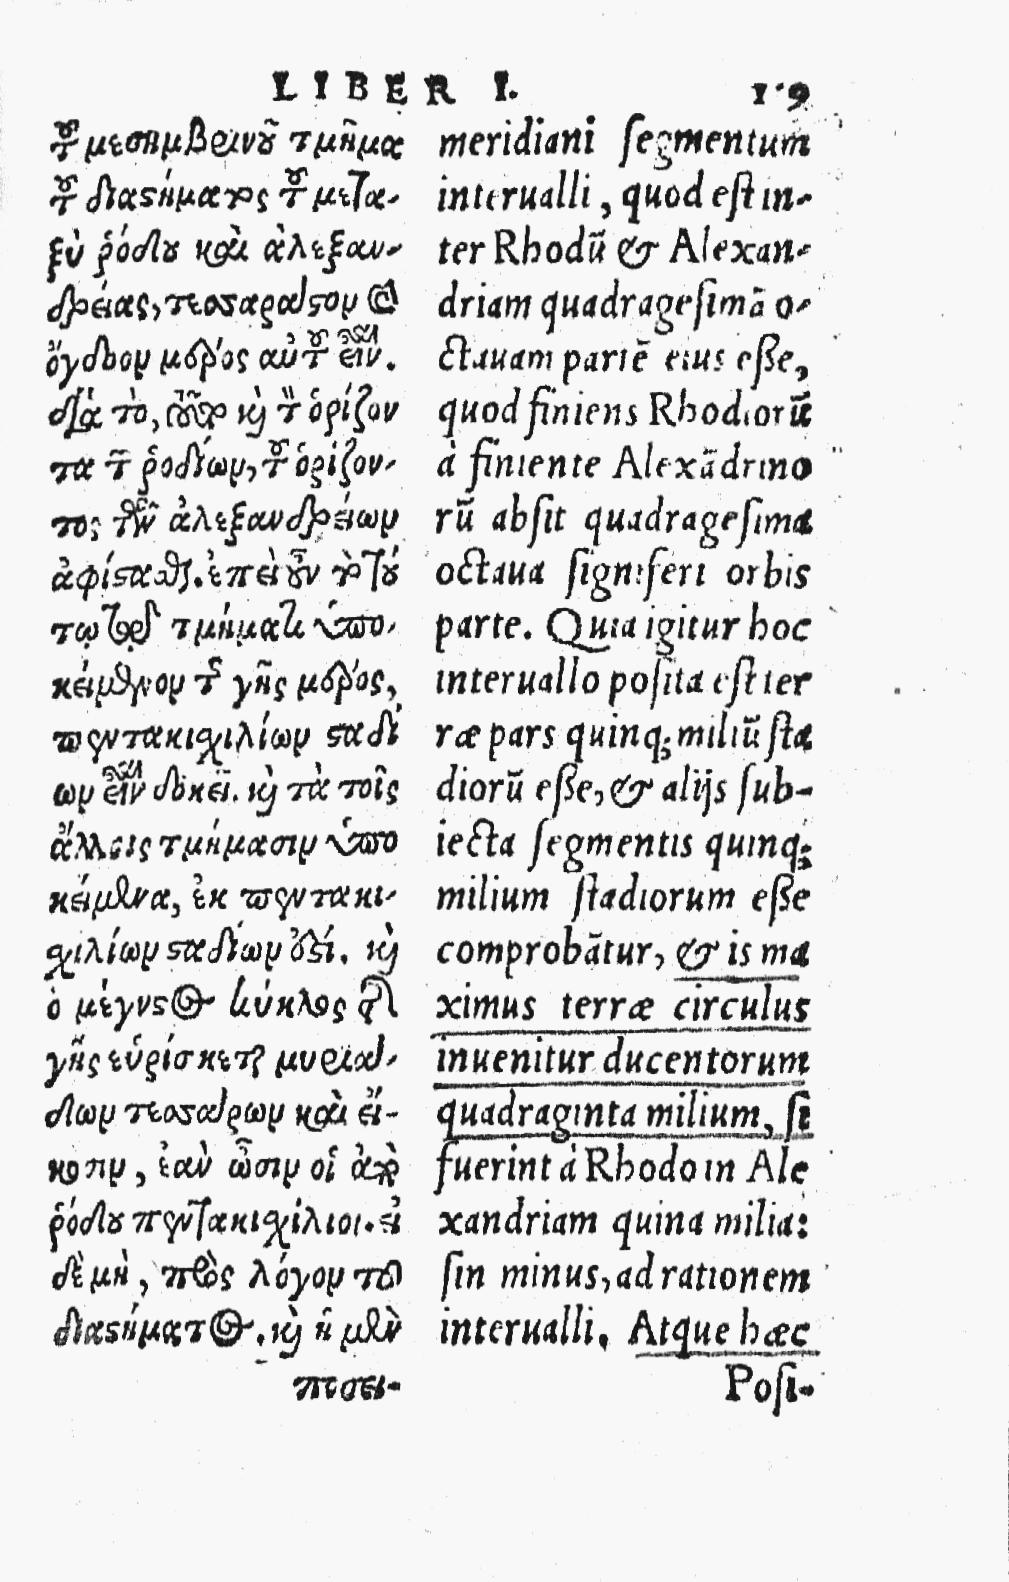 LIBER I. 19
τοῦ μεσημβρινοῦ τμῆμα
τοῦ διαστήματος τοῦ μετα-
ξὺ ῥόδου καὶ ἀλεξαν-
δρείας, τεσσαρακοστον καὶ
ὄγδοον μέρος αὐτοῦ εἶναι.
διὰ τὸ, καὶ τὸν ὁρίζον
τα τῶν ῥοδίων, τοῦ ὁρίζον-
τος τῶν ἀλεξανδρείων
ἀφίστασθαι. ἐπεὶ οὖν τὸ τού
τῳ τῷ τμήματι ὑπο-
κείμενον τῆς γῆς μέρος,
πεντακιχιλίων σταδί
ων εἶναι δοκεῖ. καὶ τὰ τοῖς
ἄλλοις τμήμασιν ὑπο
κείμενα, ἐκ πεντακι-
χιλίων σταδίων ἐστί. καὶ
ὁ μέγιστος κύκλος τῆς
γῆς εὑρίσκεται μυριά-
δων τεσσάρων καὶ εἴ-
κοσιν, ἐὰν ὦσιν οἱ ἀπὸ
ῥόδου πεντακιχίλιοι. εἰ
δὲ μὴ, πρὸς λόγον τοῦ
διαστήματος. καὶ ἡ μὲν
ποσει-
meridiani segmentum
interualli, quod est in-
ter Rhodũ & Alexan-
driam quadragesimã o-
ctauam partẽ eius esse,
quod finiens Rhodiorũ
à finiente Alexãdrino
rũ absit quadragesima
octaua signiferi orbis
parte. Quia igitur hoc
interuallo posita est ter
ræ pars quinq; miliũ sta
diorũ esse, & alijs sub-
iecta segmentis quinq;
milium stadiorum esse
comprobãtur, & is ma
ximus terræ circulus
inuenitur ducentorum
quadraginta milium, si
fuerint à Rhodo in Ale
xandriam quina milia:
sin minus, ad rationem
interualli. Atque hæc
Posi-